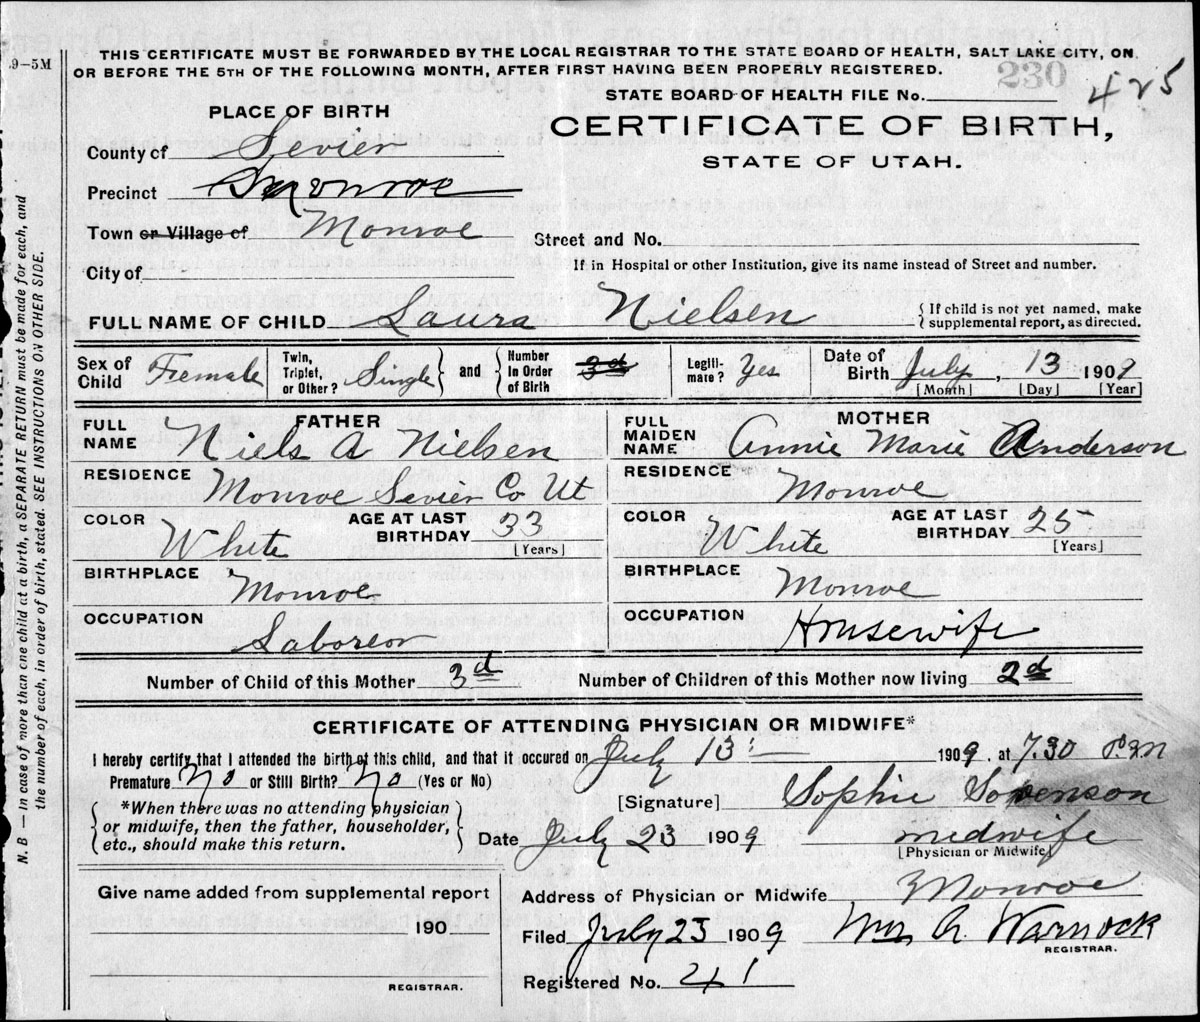 THIS CERTIFICATE MUST BE FORWARDED BY THE LOCAL REGISTRAR TO THE STATE BOARD OF HEALTH, SALT LAKE CITY, ON
OR BEFORE THE 5TH OF THE FOLLOWING MONTH, AFTER FIRST HAVING BEEN PROPERLY REGISTERED.
9-5M
230
425
STATE BOARD OF HEALTH FILE No.
PLACE OF BIRTH
CERTIFICATE OF BIRTH,
STATE OF UTAH.
County of Sevier
Precinct Monroe
Town or Village of Monroe
Street and No.
City of
If in Hospital or other Institution, give its name instead of Street and number.
FULL NAME OF CHILD Laura Nielsen
{ If child is not yet named, make
supplemental report, as directed.
Sex of Child Female
Twin, Triplet, or Other? Single } and { Number in Order of Birth 3d
Legiti- mate? Yes
Date of Birth July, 13 1909
[Month] [Day] [Year]
FATHER
FULL NAME Niels A Nielsen
RESIDENCE Monroe Sevier Co Ut
COLOR White
AGE AT LAST BIRTHDAY 33
[Years]
BIRTHPLACE Monroe
OCCUPATION Laboreor
MOTHER
FULL MAIDEN NAME Annie Marie Anderson
RESIDENCE Monroe
COLOR White
AGE AT LAST BIRTHDAY 25
[Years]
BIRTHPLACE Monroe
OCCUPATION Housewife
Number of Child of this Mother 3d
Number of Children of this Mother now living 2d
CERTIFICATE OF ATTENDING PHYSICIAN OR MIDWIFE*
I hereby certify that I attended the birth of this child, and that it occured on July 13 1909, at 7.30 P.M
Premature No or Still Birth? No (Yes or No)
*When there was no attending physician
or midwife, then the father, householder,
etc., should make this return.
[Signature] Sophie Sorenson
Date July 23 1909 midwife
[Physician or Midwife]
Give name added from supplemental report
190
REGISTRAR.
Address of Physician or Midwife Monroe
Filed July 23 1909 Wm A. Warnock
REGISTRAR.
Registered No. 41
N. B — In case of more than one child at a birth, a SEPARATE RETURN must be made for each, and
the number of each, in order of birth, stated. SEE INSTRUCTIONS ON OTHER SIDE.